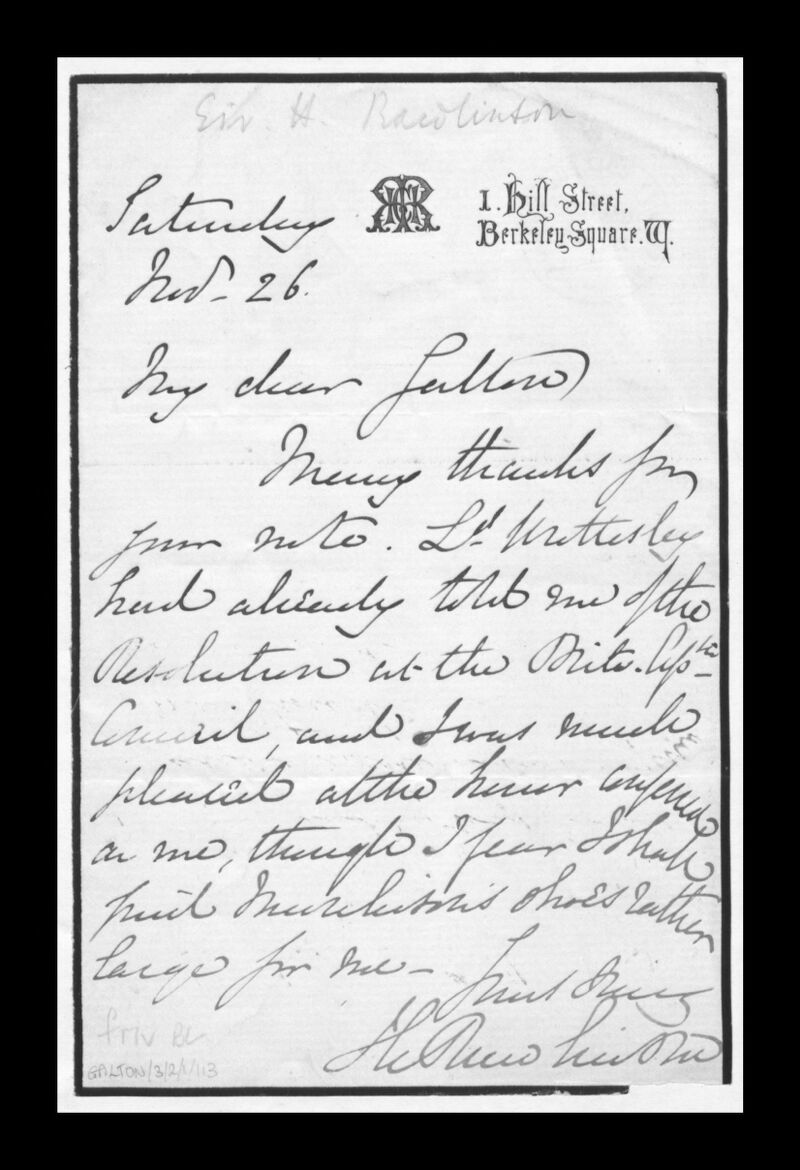 Sir H. Rawlinson
1. Hill Street,
Berkeley Square. W.
Saturday
Nov. 26.
My dear Galton
Many thanks for
your note. Ld. Wrottesley
had already told me of the
Resolution at the Brit.
Council, and I was much
pleased at the honor conferred
on me, though I fear I shall
find Murchison's shoes rather
large for me –
Yours truly
H C Rawlinson
GALTON/3/2/1/113